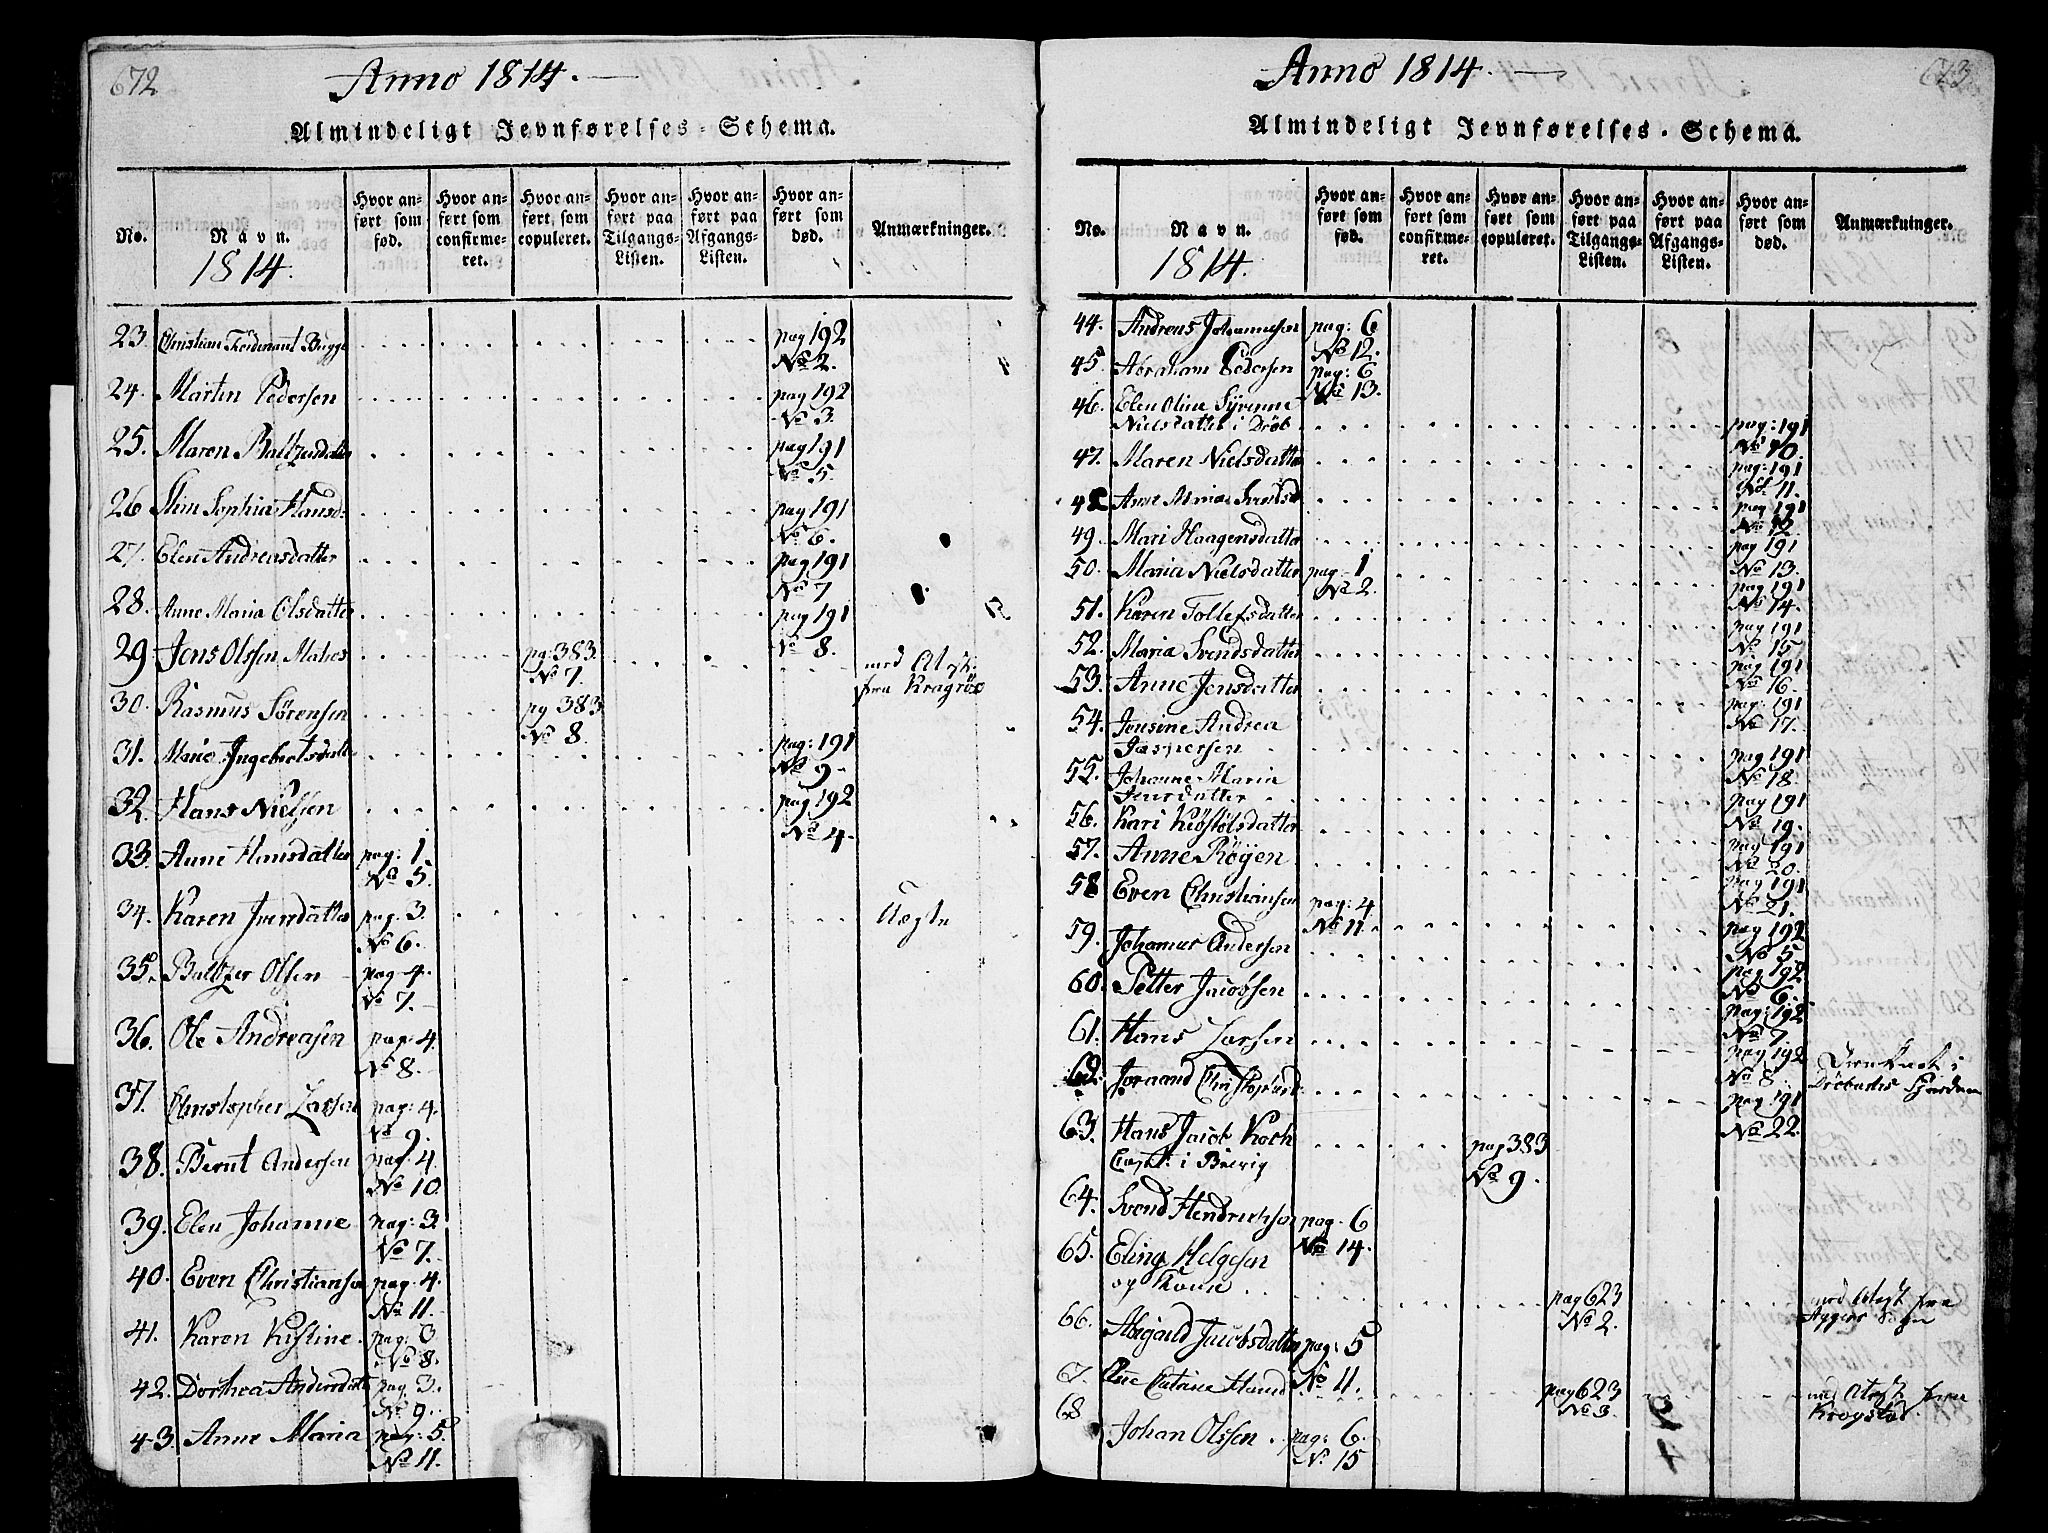 672
Anno 1814.
Almindeligt Jevnførelses-Schema.
No.
Navn.
1814.
Hvor anført som fød.
Hvor anført som confirmeret.
Hvor anført, som copuleret.
Hvor anført paa Tilgangs-Listen.
Hvor anført paa Afgangs-Listen.
Hvor anført som død.
Anmærkninger.
23. Christian Ferdinant Bugge pag 192
No 2.
24. Martin Pedersen pag 192
No 3.
25. Maren Baltzersdatter pag 191
No 5.
26 Sophia Hansd: pag 191
No 6.
27. Elen Andreasdatter pag 191
No 7
28. Anne Maria Olsdatter pag 191
No 8.
29 Jens Olssen Matros pag: 383. med Atest:
No 7. fra Kragröe
30. Rasmus Sörensen pg 383
No 8.
31. Marie Ingebretsdatter pag: 191
No 9
32. Hans Nielsen pag 192
No 4.
33. Anne Hansdatter pag: 1.
No 5.
34. Karen Iversdatter pag. 3. Uægte
No 6.
35. Baltzer Olsen pag 4.
No 7.
36. Ole Andreasen pag. 4.
No 8.
37. Christopher Larsen pag: 4.
No 9.
38. Bernt Andersen pag. 4.
No 10.
39. Elen Johanne pag: 3.
No 7.
40. Even Christiansen pag. 4.
No 11.
41. Karen Kistine. pag: 3
No 8.
42. Dorthea Andersdatter pag. 3.
No 9.
43. Anne Maria pag: 5.
No 11.
673
Anno 1814.
Almindeligt Jevnførelses-Schema.
No.
Navn.
1814.
Hvor anført som fød.
Hvor anført som confirmeret.
Hvor anført som copuleret.
Hvor anført paa Tilgangs-Listen.
Hvor anført paa Afgangs-Listen.
Hvor anført som død.
Anmærkninger.
44. Andreas Johannesen pag: 6
No 12.
45. Abraham Pedersen pag: 6
No 13.
46. Elen Oline Syrenne
Nielsdatter i Dröb. pag: 191
No 10.
47. Maren Nielsdatter pag: 191
No 11.
48 Anne Maria Svendsd pag 191
No 12.
49. Mari Haagensdatter pag 191
No 13.
50. Maria Nielsdatter pag 1 pag 191
No 2. No 14.
51. Karen Tollefsdatter pag 191
No 15
52. Maria Svendsdatter pag 191
No 16.
53. Anne Jensdatter pag: 191
No 17.
54. Jensine Andrea
Jaspersen pag 191
No 18.
55. Johanne Maria
Jensdatter pag 191
No 19.
56. Kari Kiöstölsdatter pag 191
No 20.
57. Anne Röyen pag 191
No 21.
58 Even Christiansen pag: 4 pag 192
No 11. No 5
59. Johannes Andersen pag 192
No 6.
60. Petter Jacobsen pag: 192
No 7
61. Hans Larsen pag 192 Druknet i
No 8. Dröbachs Fjorden
62. Joraand Christophersd pag 191
No 22.
63. Hans Jacob Koch pag 383
Capt: i Brevig No 9.
64. Svend Hendrichsen pag. 6
No 14.
65. Eling Helgesen
og Kone pag 623 med Atest fra
No 2. Aggers Sogn
66. Abigaild Jacobsdatter pag: 5
No 11.
67. Else Catrine Hansd pag 623 med Atest fra
No 3. Krogstad.
68 Johan Olssen pag: 6.
No 15